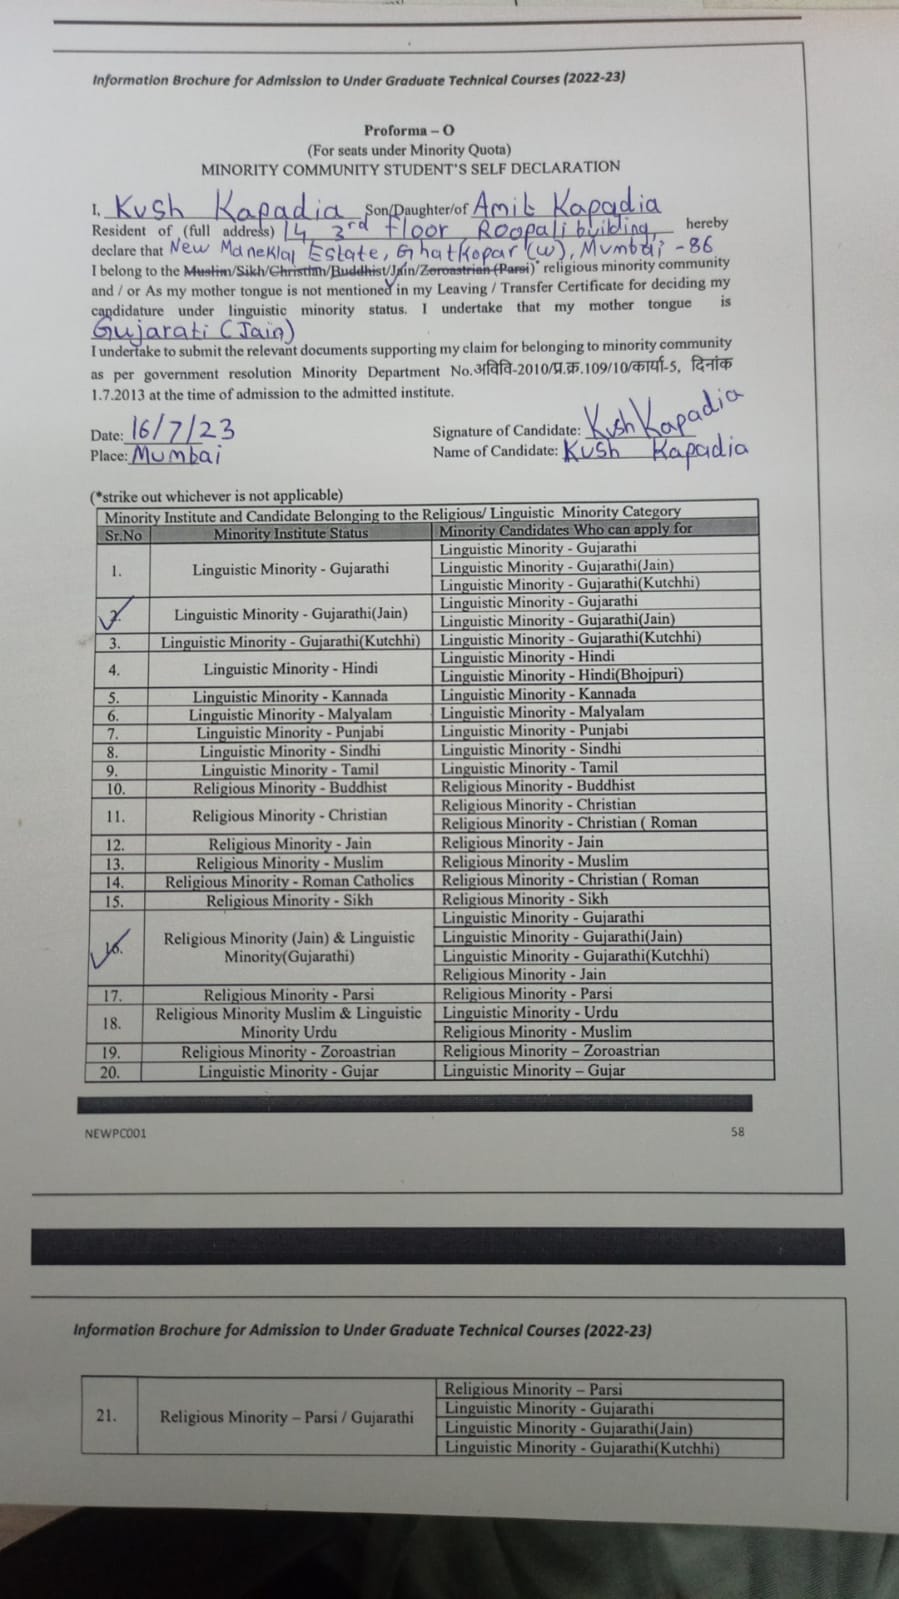 Information Brochure for Admission to Under Graduate Technical Courses (2022-23)
Proforma – O
(For seats under Minority Quota)
MINORITY COMMUNITY STUDENT'S SELF DECLARATION
I, Kush Kapadia Son/Daughter/of Amit Kapadia
Resident of (full address) 14 3rd floor Roopali building, hereby
declare that New Maneklal Estate, Ghatkopar (w), Mumbai -86
I belong to the Muslim/Sikh/Christian/Buddhist/Jain/Zoroastrian (Parsi)* religious minority community
and / or As my mother tongue is not mentioned in my Leaving / Transfer Certificate for deciding my
candidature under linguistic minority status. I undertake that my mother tongue is
Gujarati (Jain)
I undertake to submit the relevant documents supporting my claim for belonging to minority community
as per government resolution Minority Department No.अविवि-2010/प्र.क्र.109/10/कार्या-5, दिनांक
1.7.2013 at the time of admission to the admitted institute.
Date: 16/7/23 Signature of Candidate: Kush Kapadia
Place: Mumbai Name of Candidate: Kush Kapadia
(*strike out whichever is not applicable)
Minority Institute and Candidate Belonging to the Religious/ Linguistic Minority Category
Sr.No Minority Institute Status Minority Candidates Who can apply for
1. Linguistic Minority - Gujarathi Linguistic Minority - Gujarathi
Linguistic Minority - Gujarathi(Jain)
Linguistic Minority - Gujarathi(Kutchhi)
2. Linguistic Minority - Gujarathi(Jain) Linguistic Minority - Gujarathi
Linguistic Minority - Gujarathi(Jain)
3. Linguistic Minority - Gujarathi(Kutchhi) Linguistic Minority - Gujarathi(Kutchhi)
4. Linguistic Minority - Hindi Linguistic Minority - Hindi
Linguistic Minority - Hindi(Bhojpuri)
5. Linguistic Minority - Kannada Linguistic Minority - Kannada
6. Linguistic Minority - Malyalam Linguistic Minority - Malyalam
7. Linguistic Minority - Punjabi Linguistic Minority - Punjabi
8. Linguistic Minority - Sindhi Linguistic Minority - Sindhi
9. Linguistic Minority - Tamil Linguistic Minority - Tamil
10. Religious Minority - Buddhist Religious Minority - Buddhist
11. Religious Minority - Christian Religious Minority - Christian
Religious Minority - Christian ( Roman
12. Religious Minority - Jain Religious Minority - Jain
13. Religious Minority - Muslim Religious Minority - Muslim
14. Religious Minority - Roman Catholics Religious Minority - Christian ( Roman
15. Religious Minority - Sikh Religious Minority - Sikh
16. Religious Minority (Jain) & Linguistic Minority(Gujarathi) Linguistic Minority - Gujarathi
Linguistic Minority - Gujarathi(Jain)
Linguistic Minority - Gujarathi(Kutchhi)
Religious Minority - Jain
17. Religious Minority - Parsi Religious Minority - Parsi
18. Religious Minority Muslim & Linguistic Minority Urdu Linguistic Minority - Urdu
Religious Minority - Muslim
19. Religious Minority - Zoroastrian Religious Minority – Zoroastrian
20. Linguistic Minority - Gujar Linguistic Minority – Gujar
NEWPC001 58
Information Brochure for Admission to Under Graduate Technical Courses (2022-23)
21. Religious Minority – Parsi / Gujarathi Religious Minority – Parsi
Linguistic Minority - Gujarathi
Linguistic Minority - Gujarathi(Jain)
Linguistic Minority - Gujarathi(Kutchhi)